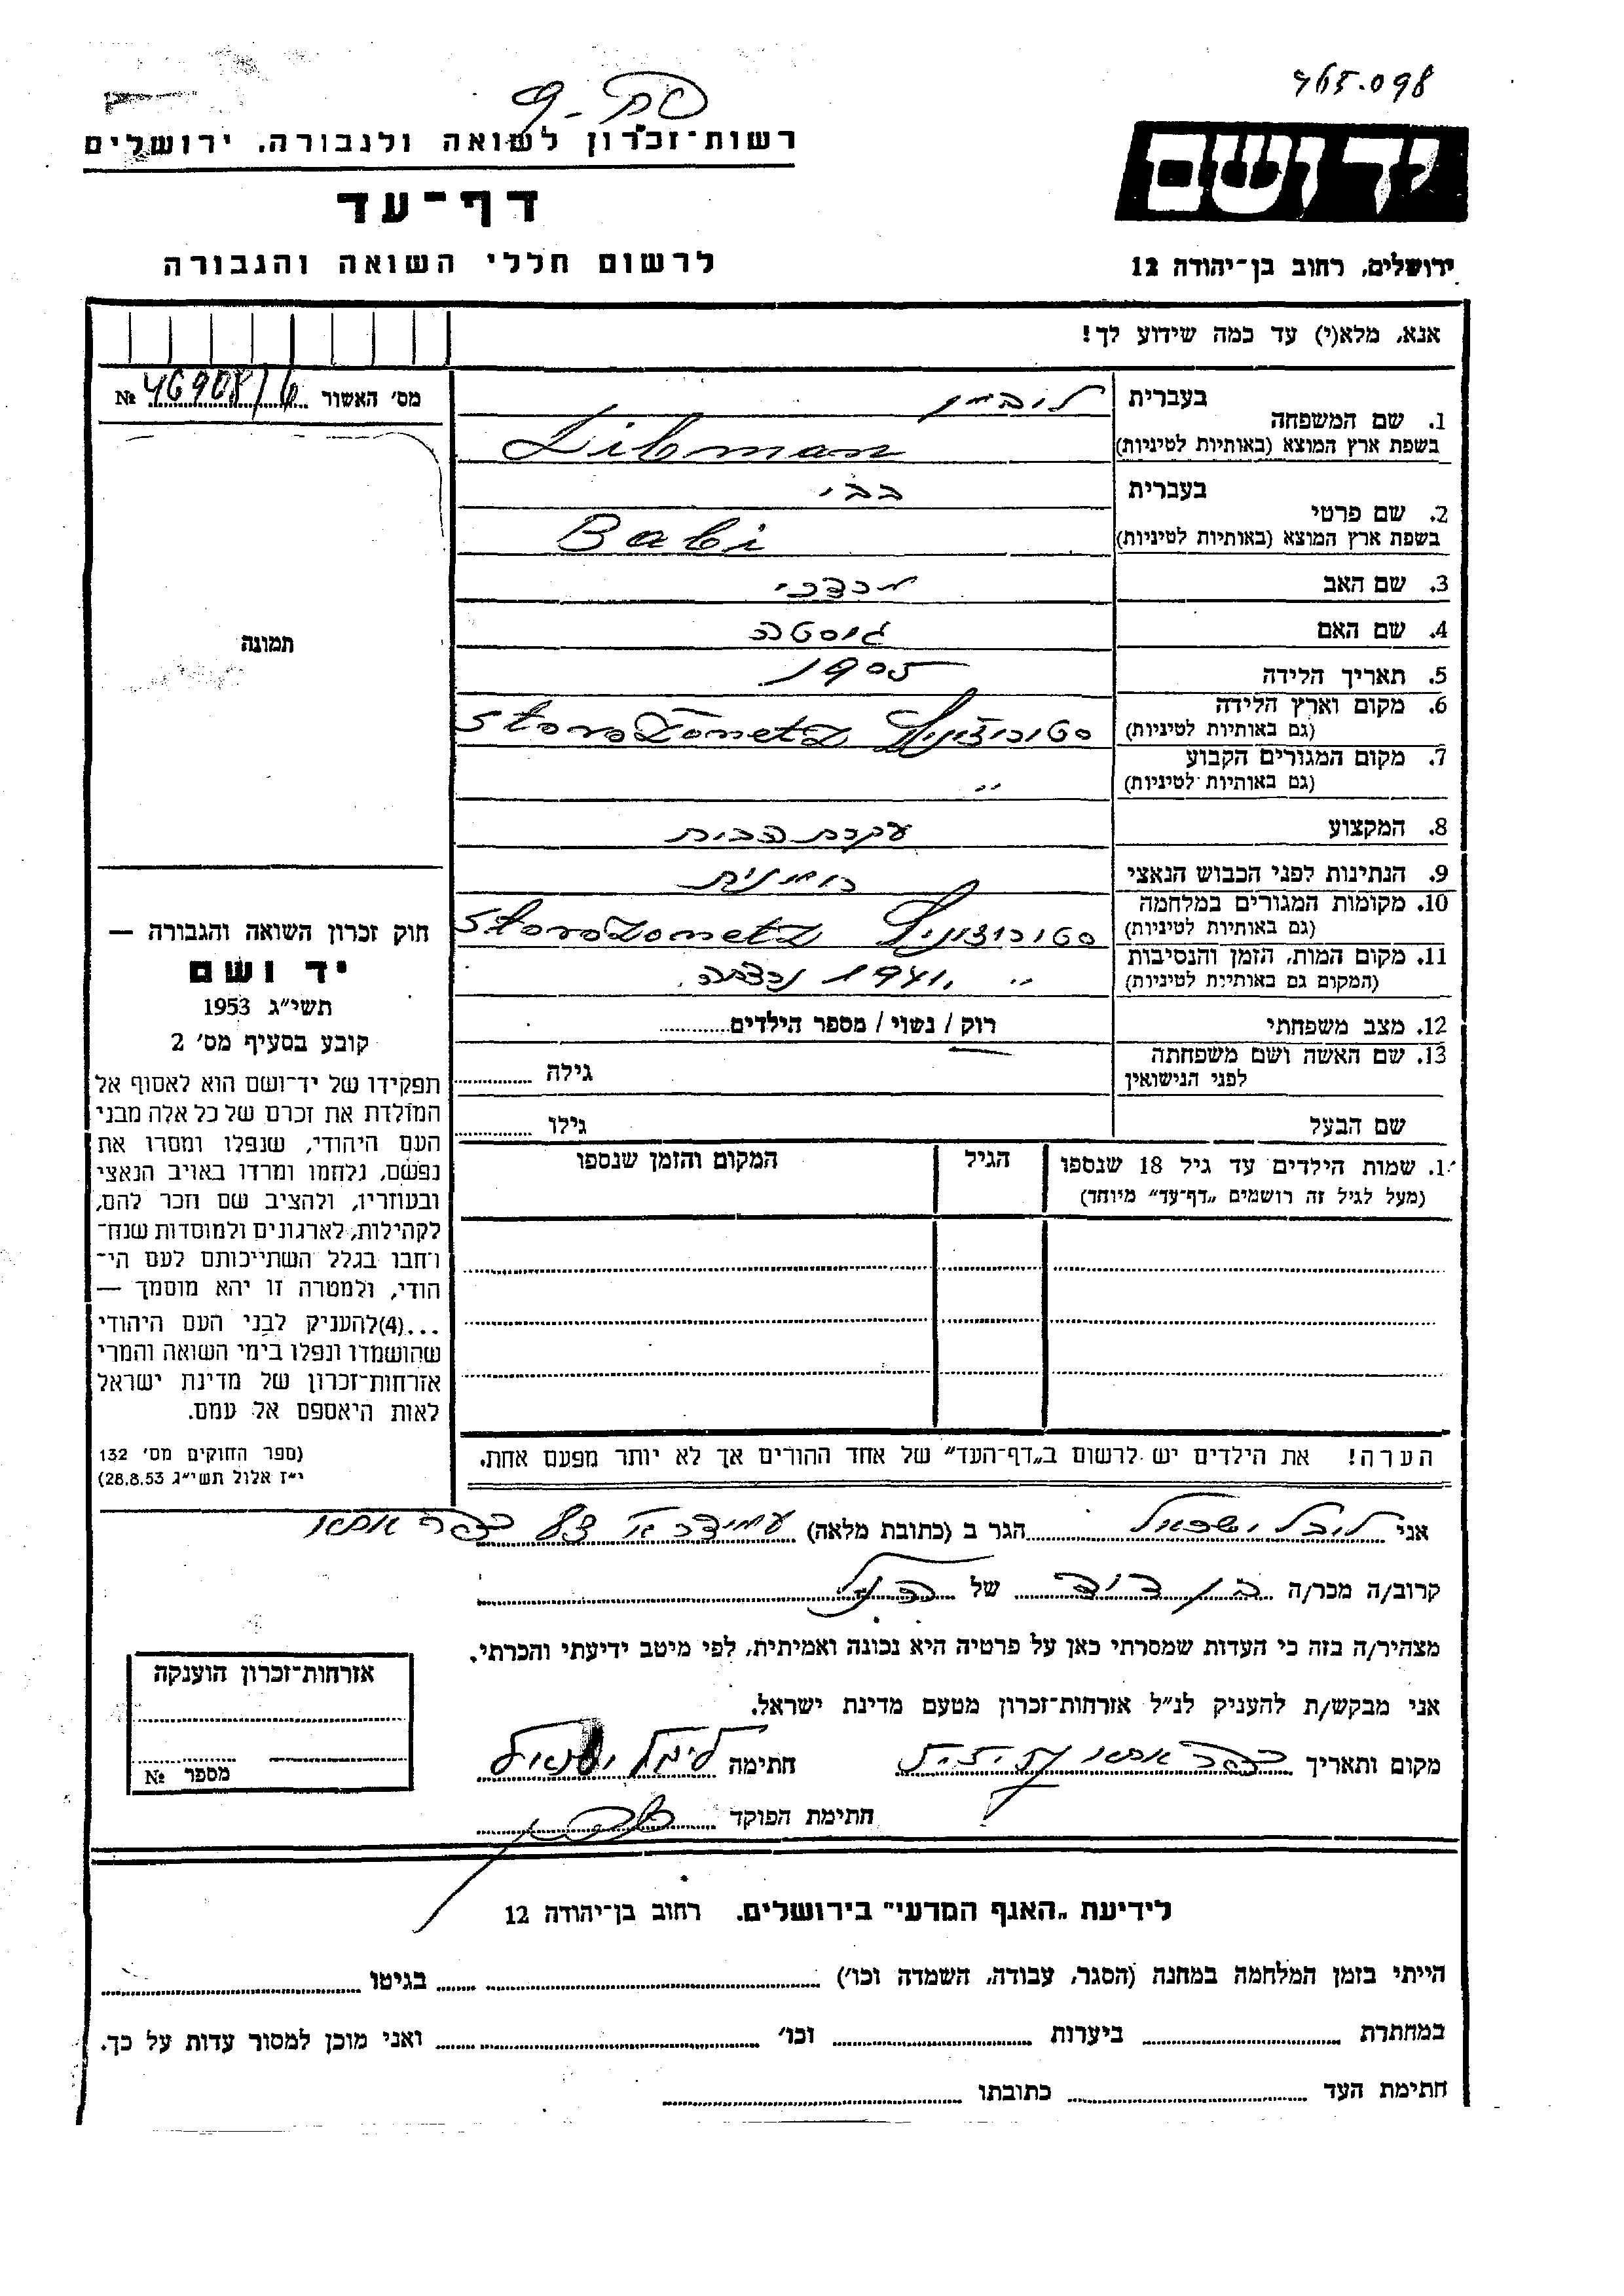 465.098
רשות-זכרון לשואה ולגבורה, ירושלים
יד ושם
דף-עד
לרשום חללי השואה והגבורה
ירושלים, רחוב בן-יהודה 12
אנא, מלא(י) עד כמה שידוע לך!
מס' האשור 46908/6 №
1. שם המשפחה
בעברית ליבמן
בשפת ארץ המוצא (באותיות לטיניות) Libman
2. שם פרטי
בעברית בבי
בשפת ארץ המוצא (באותיות לטיניות) Babi
3. שם האב מרדכי
4. שם האם גוסטה
5. תאריך הלידה 1905
6. מקום וארץ הלידה
(גם באותיות לטיניות) סטורוז'ניץ StoroZonetz
7. מקום המגורים הקבוע
(גם באותיות לטיניות) "
8. המקצוע עקרת הבית
9. הנתינות לפני הכבוש הנאצי רומנית
10. מקומות המגורים במלחמה
(גם באותיות לטיניות) סטורוז'ניץ StoroZonetz
11. מקום המות, הזמן והנסיבות
(המקום גם באותיות לטיניות) " 1941. נרצחה.
12. מצב משפחתי רוק / נשוי / מספר הילדים
13. שם האשה ושם משפחתה
לפני הנישואין גילה
שם הבעל גילו
1. שמות הילדים עד גיל 18 שנספו
(מעל לגיל זה רושמים "דף-עד" מיוחד)
הגיל
המקום והזמן שנספו
הערה! את הילדים יש לרשום ב"דף-העד" של אחד ההורים אך לא יותר מפעם אחת.
תמונה
חוק זכרון השואה והגבורה —
יד ושם
תשי"ג 1953
קובע בסעיף מס' 2
תפקידו של יד-ושם הוא לאסוף אל
המולדת את זכרם של כל אלה מבני
העם היהודי, שנפלו ומסרו את
נפשם, נלחמו ומרדו באויב הנאצי
ובעוזריו, ולהציב שם וזכר להם,
לקהילות, לארגונים ולמוסדות שנח-
רחבו בגלל השתייכותם לעם הי-
הודי, ולמטרה זו יהא מוסמך —
...(4)להעניק לבני העם היהודי
שהושמדו ונפלו בימי השואה והמרי
אזרחות-זכרון של מדינת ישראל
לאות היאספם אל עמם.
(ספר החוקים מס' 132
י"ז אלול תשי"ג 28.8.53)
אני ישראל הגר ב (כתובת מלאה) עמידר א' כפר אתא
קרוב/ה מכר/ה בן דוד של הנ"ל
מצהיר/ה בזה כי העדות שמסרתי כאן על פרטיה היא נכונה ואמיתית, לפי מיטב ידיעתי והכרתי.
אני מבקש/ת להעניק לנ"ל אזרחות-זכרון מטעם מדינת ישראל.
מקום ותאריך כפר אתא חתימה ישראל
חתימת הפוקד
אזרחות-זכרון הוענקה
מספר №
לידיעת "האגף המדעי" בירושלים. רחוב בן-יהודה 12
הייתי בזמן המלחמה במחנה (הסגר, עבודה, השמדה וכו') בגיטו
במחתרת ביערות וכו' ואני מוכן למסור עדות על כך.
חתימת העד כתובתו